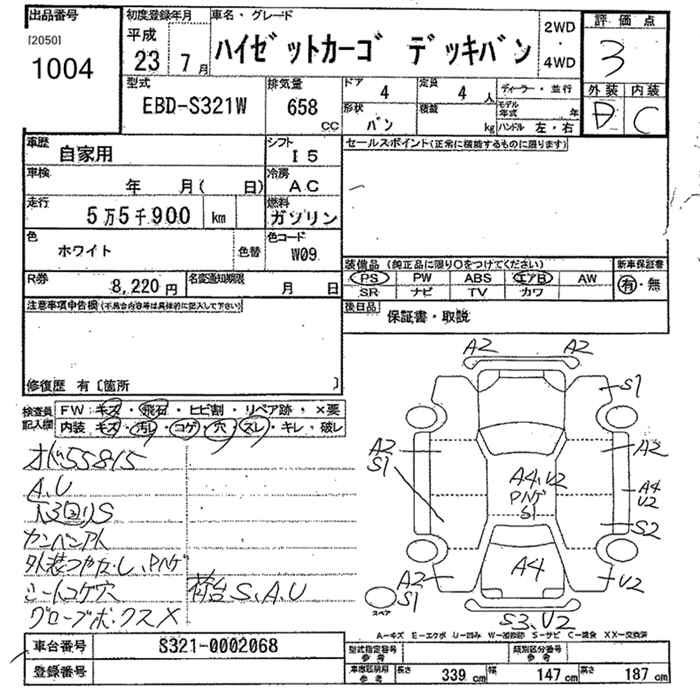 出品番号 初度登録年月 車名・グレード 2WD・4WD 評価点
[2050] 平成
1004 23 7月 ハイゼットカーゴ デッキバン 3
型式 排気量 ドア 4 定員 4人 ディーラー・並行 外装 内装
EBD-S321W 658 CC 形状 バン 積載 kg モデル年式 年 ハンドル 左・右 D C
車歴 自家用 シフト I5 セールスポイント(正常に機能するものに限ります)
車検 年 月( 日) 冷房 AC
走行 5万5千900 km 燃料 ガソリン
色 ホワイト 色替 色コード W09
装備品 (純正品に限り○をつけてください) 新車保証書
R券 8,220円 名変通知期限 月 日 PS PW ABS エアB AW 有・無
SR ナビ TV カワ
注意事項申告欄(不具合内容等は具体的に記入して下さい) 後日品 保証書・取説
修復歴 有〔箇所 〕
検査員記入欄 FW キズ・飛石・ヒビ割・リペア跡・×要
内装 キズ・汚レ・コゲ・穴・スレ・キレ・破レ
オド55815
A、U
S
外装つやなし、PNゲ
シートコゲ穴 荷台S、A、U
グローブボックスX
A2 A2
S1
A2 S1 A2
A4、U2 PNゲ S1 A4 U2
S2
A2 S1 A4 U2
スペア S3、U2
A―キズ E―エクボ U―凹み W―補修跡 S―サビ C―腐食 XX―交換済
車台番号 S321-0002068 型式指定番号 参考 類別区分番号 参考
登録番号 車庫区画用 参考 長さ 339cm 幅 147cm 高さ 187cm